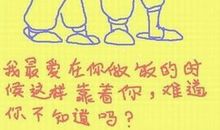 我最爱在你做饭的时
候这样靠着你，难道
你不知道吗？